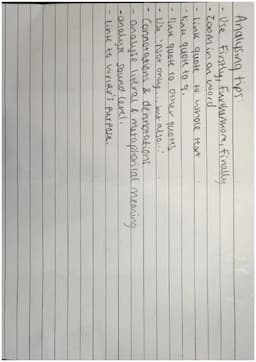 Analysing tips:
- Use Firstly, Furthermore, Finally
- Zoom in on a word
- link quote to whole text
- link quote to q.
- link quote to other quotes
- Use 'Not only... but also...'
- Connotations & dennotations
- analyse literal & metaphorical meaning
- analyse sound level.
- link to writer's purpose.